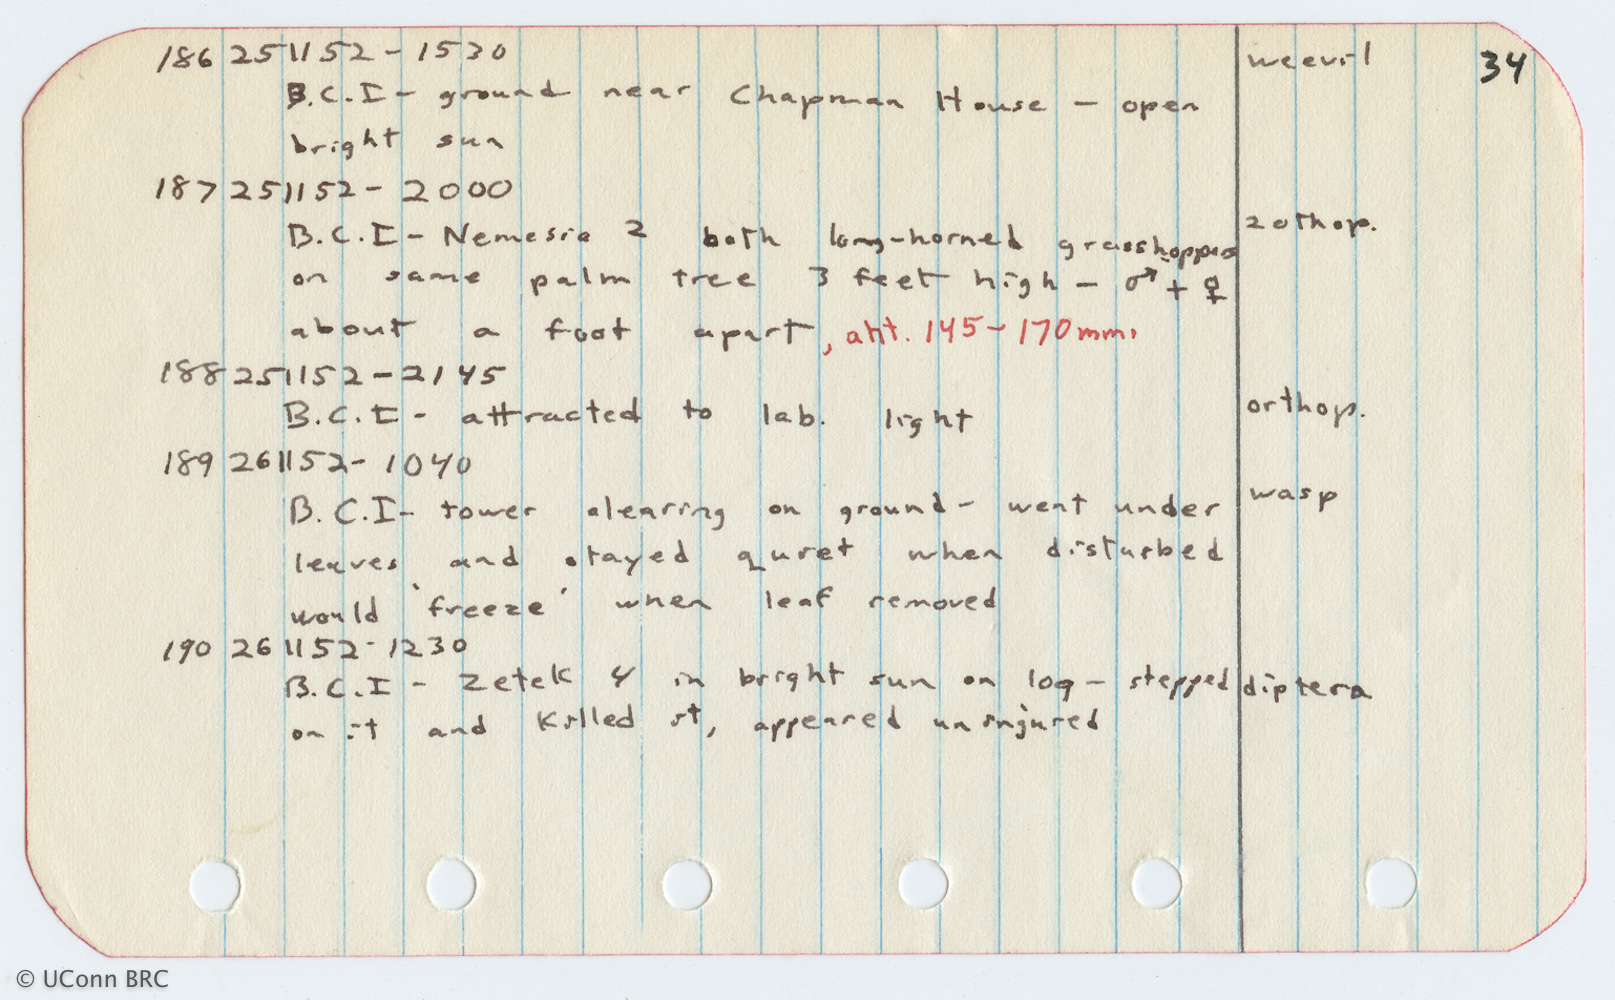 34
186 251152 - 1530 weevil
B.C.I - ground near Chapman House - open
bright sun
187 251152 - 2000
B.C.I - Nemesia 2 both long-horned grasshoppers 2 othop.
on same palm tree 3 feet high - ♂ + ♀
about a foot apart, ant. 145 - 170 mm.
188 251152 - 2145
B.C.I - attracted to lab. light orthop.
189 261152 - 1040
B.C.I - tower clearing on ground - went under wasp
leaves and stayed quiet when disturbed
would 'freeze' when leaf removed
190 261152 - 1230
B.C.I - Zetek 4 in bright sun on log - stepped diptera
on it and killed it, appeared uninjured
© UConn BRC